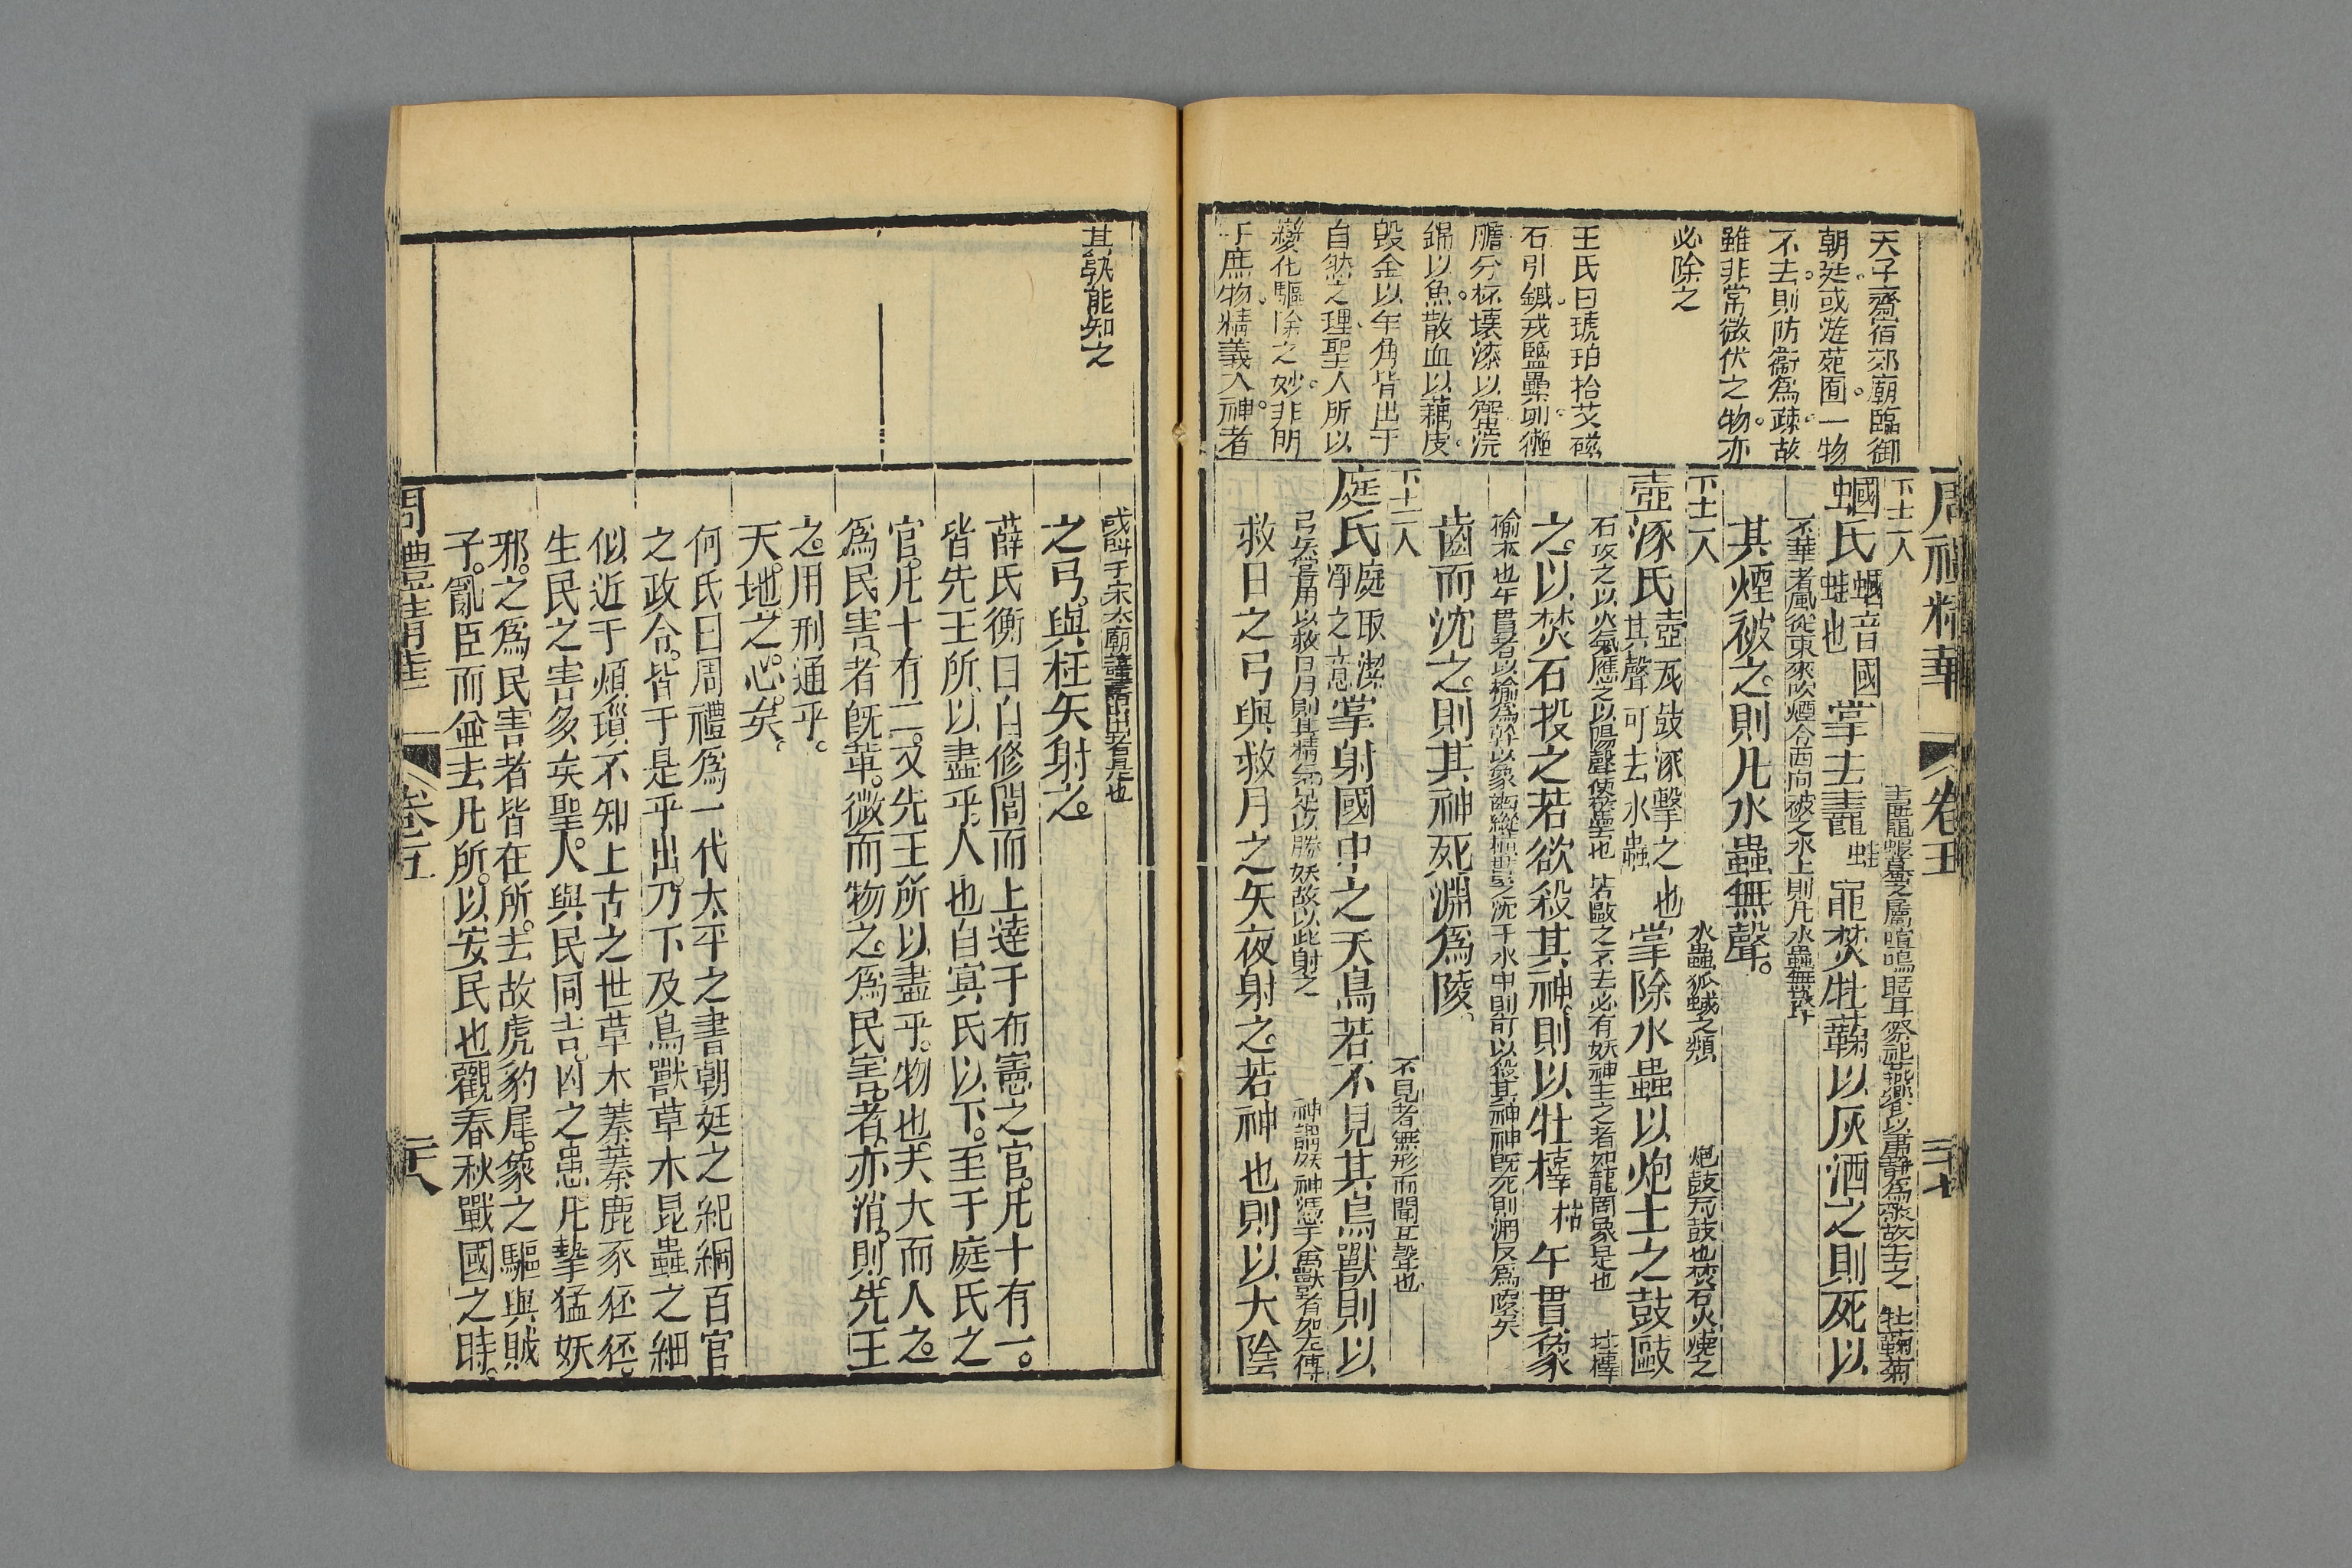 天子齋宿郊廟臨御
朝廷或遊苑囿一物
不去則防衞爲疎故
雖非常微伏之物亦
必除之
王氏曰琥珀拾艾磁
石引鍼戎鹽累卵獺
膽分杯壞漆以蟹浣
錦以魚散血以藕皮
毀金以羊角皆出于
自然之理聖人所以
變化驅除之妙非明
于庶物精義入神者
周禮精華 卷五 二十七
下士一人
蟈氏蟈音國蛙也掌去鼃蛙黽焚牡蘜以灰洒之則死以
不華者風從東來吹煙令西向被之水上則凡水蟲無聲
其煙被之則凡水蟲無聲
下士一人 水蟲狐蜮之類 炮鼓瓦鼓也焚石火燒之
壺涿氏壺瓦鼓涿擊之也其聲可去水蟲掌除水蟲以炮土之鼓敺
石攻之以火氣應之以陽聲使驚也 若敺之不去必有妖神主之者如龍罔象是也 牡橭
之以焚石投之若欲殺其神則以牡橭枯午貫象
榆木也午貫者以榆爲幹以象齒縱橫貫之沈于水中則可以殺其神神旣死則淵反爲陵矣
齒而沈之則其神死淵爲陵
下士一人 不見者無形而聞其聲也
庭氏庭取潔淨之意掌射國中之夭鳥若不見其鳥獸則以
弓矢皆用以救日月則其精氣足以勝妖故以此射之 神謂妖神憑于禽獸者如左傳
救日之弓與救月之矢夜射之若神也則以大陰
其孰能知之
或呌于宋太廟譆譆出出者是也
之弓與枉矢射之
薛氏衡曰自修閭而上達于布憲之官凡十有一
皆先王所以盡乎人也自冥氏以下至于庭氏之
官凡十有二又先王所以盡乎物也夫大而人之
爲民害者旣革微而物之爲民害者亦消則先王
之用刑通乎
天地之心矣
何氏曰周禮爲一代太平之書朝廷之紀綱百官
之政令皆于是乎出乃下及鳥獸草木昆蟲之細
似近于煩瑣不知上古之世草木蓁蓁鹿豕狉狉
生民之害多矣聖人與民同吉凶之患凡摯猛妖
邪之爲民害者皆在所去故虎豹犀象之驅與賊
子亂臣而並去凡所以安民也觀春秋戰國之時
卷五 二十八